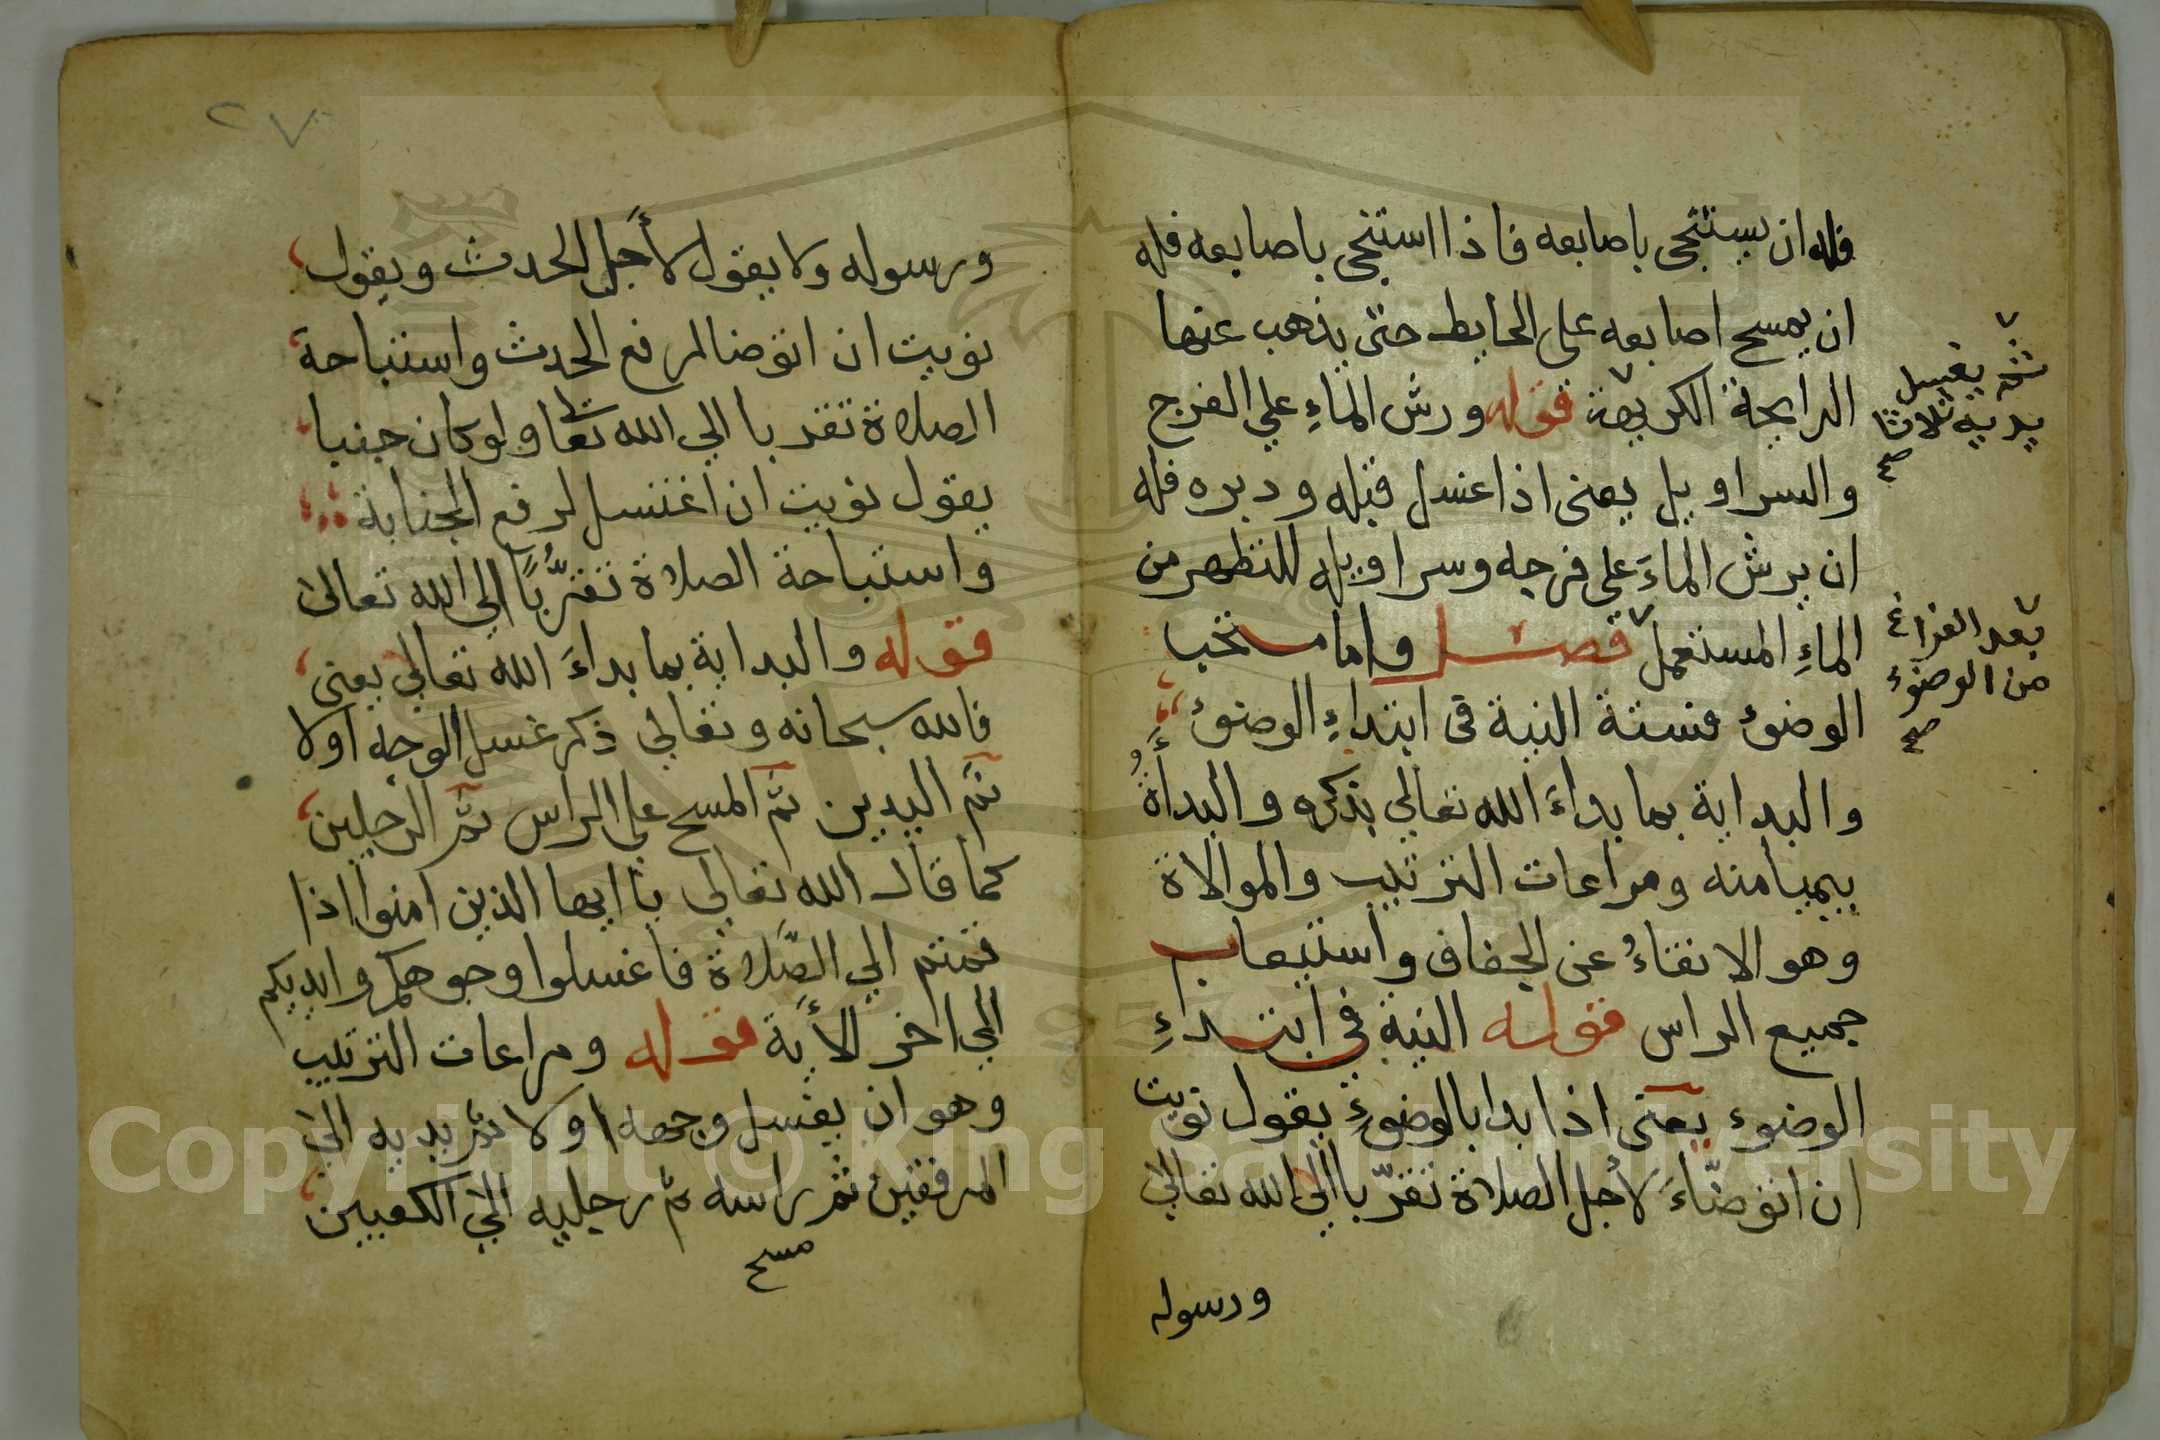 فله ان يستنجى باصابعه فاذا استنجى باصابعه فله
ان يمسح اصابعه على الحايط حتى يذهب عنها
الرايحة الكريهة قوله ورش الماءِ علي الفرج
والسراويل يعنى اذا غسل قبله ودبره فله
ان يرش الماءَ على فرجه وسراويله للتطهر من
الماءِ المستعمل فصل واما مستحبا
الوضوء فستة النية فى ابتداءِ الوضوء
والبداية بما بداءَ الله تعالي بذكره والبدأةُ
بيميامنه ومراعات الترتيب والموالاة
وهو الانقاءُ عن الجفاف واستيعاب
جميع الراس قوله النية في ابتداءِ
الوضوء يعنى اذا بدا بالوضوءِ يقول نويت
ان اتوضّاءَ لأجل الصلاة تقرّبا الى الله تعالى
ورسوله
ثم يغسل
يديه ثلاثا
صح
بعد الفراغ
من الوضوء
صح
٢٧
ورسوله ولا يقول لأجل الحدث ويقول
نويت ان اتوضا لرفع الحدث واستباحة
الصلاة تقربا الي الله تعا ولو كان جنبا
يقول نويت ان اغتسل لرفع الجنابة
واستباحة الصلاة تقرُّبًا الي الله تعالى
قوله والبداية بما بداءَ الله تعالي يعنى
فالله سبحانه وتعالي ذكر غسل الوجه اولا
ثم اليدين ثم المسح على الراس ثم الرجلين
كما قال الله تعالي يا ايها الذين امنوا اذا
قمتم الي الصَّلاة فاغسلوا وجوهكم وايديكم
الي اخر الأية قوله ومراعات الترتيب
وهو ان يغسل وجهه اولا ثم يديه الى
المرفقين ثم راسه ثم رجليه الى الكعبين
مسح
Copyright © King Saud University